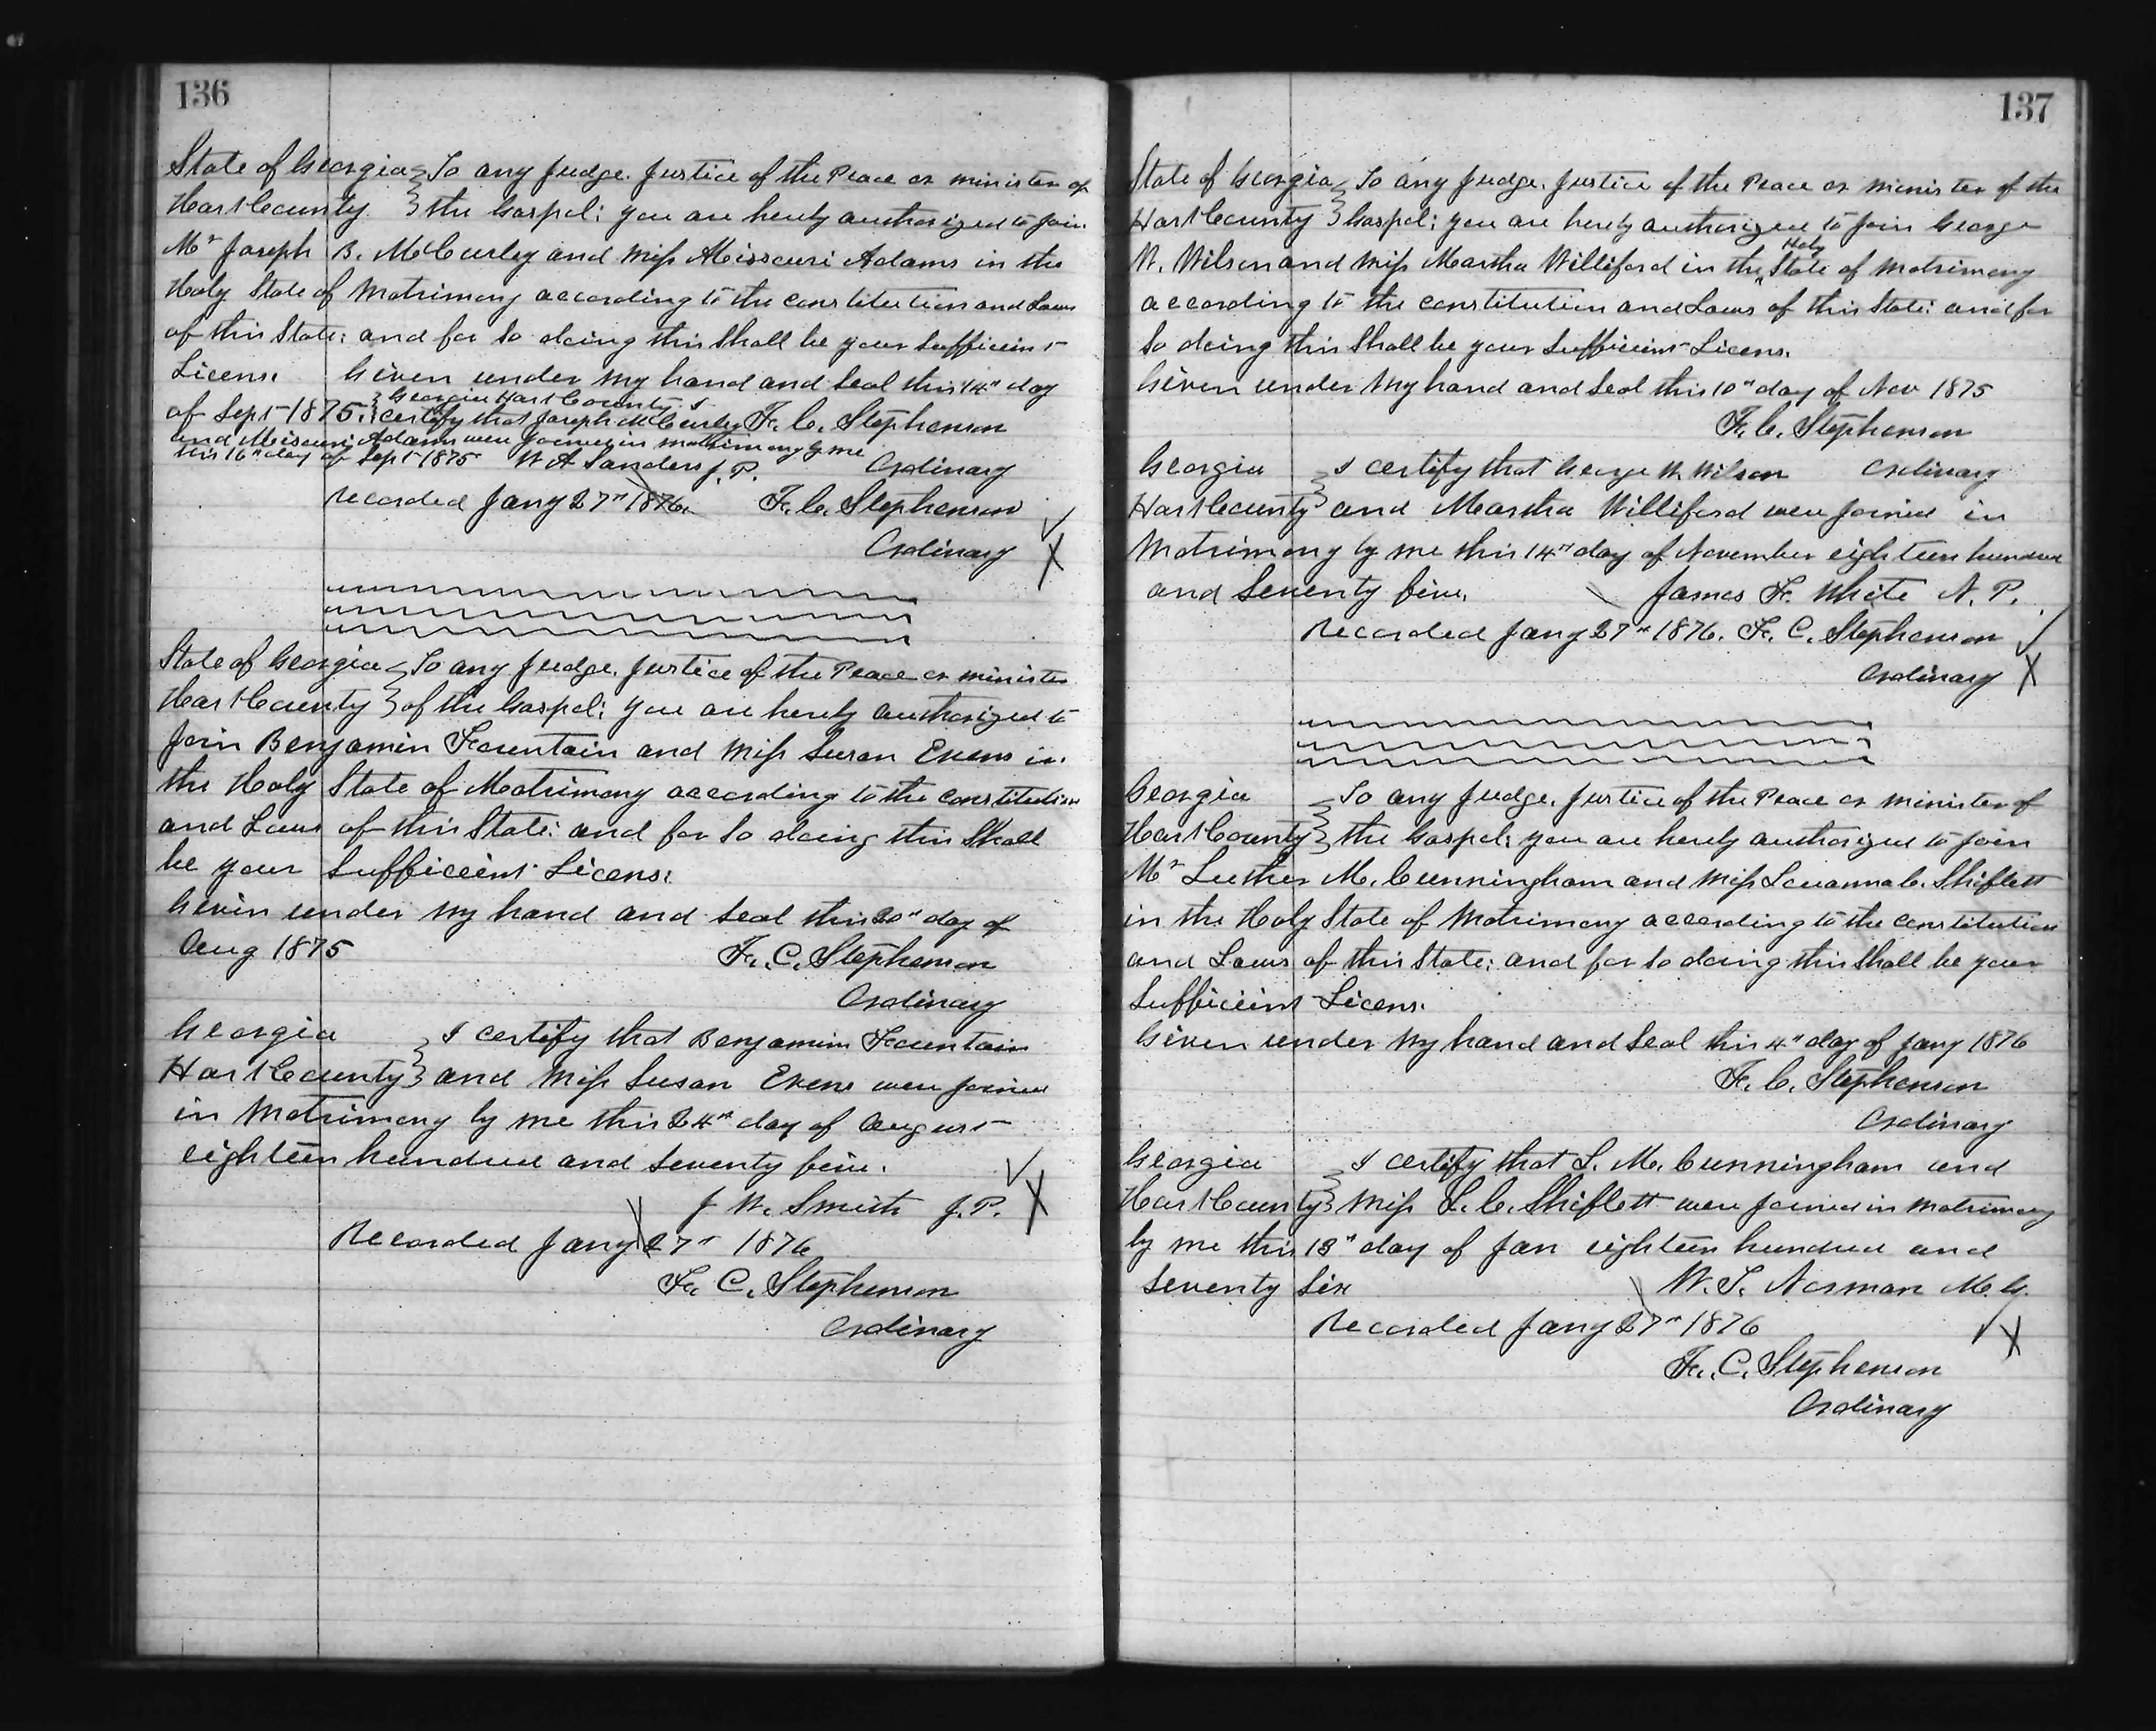 136
State of Georgia } To any Judge. Justice of the Peace or minister of
Hart County } the Gospel: you are hereby authorized to join
Mr Joseph B. McCurley and Miss Missouri Adams in the
Holy State of Matrimony according to the constitution and Laws
of this State: and for so doing this Shall be your Sufficient
Licens. Given under my hand and Seal this 14" day
of Sept 1875. } Georgia Hart County I
certify that Joseph McCurley F. C. Stephenson
and Missouri Adams were joined in matrimony by me
this 16" day of Sept 1875 W A Sanders J. P. Ordinary
Recorded Jany 27" 1876. F. C. Stephenson
Ordinary
State of Georgia } To any Judge. Justice of the Peace or minister
Hart County } of the Gospel; you are hereby authorized to
Join Benjamin Fountain and Miss Susan Evens in
the Holy State of Matrimony according to the constitution
and Laws of this State: and for so doing this Shall
be your Sufficient Licens.
Given under my hand and seal this 20" day of
Aug 1875 F. C. Stephenson
Ordinary
Georgia } I certify that Benjamin Fountain
Hart County } and Miss Susan Evens were joined
in Matrimony by me this 24" day of August
eighteen hundred and seventy five.
J W. Smith J. P.
Recorded Jany 27" 1876
F. C. Stephenson
Ordinary
137
State of Georgia } To any Judge. Justice of the Peace or Minister of the
Hart County } Gospel; you are hereby authorized to join George
W. Wilson and Miss Martha Williford in the Holy State of Matrimony
according to the constitution and Laws of this State: and for
So doing this Shall be your Sufficient Licens.
Given under my hand and Seal this 10" day of Nov 1875
F. C. Stephenson
Georgia } I certify that George W. Wilson Ordinary
Hart County } and Martha Williford were joined in
Matrimony by me this 14" day of November eighteen hundred
and Seventy five. James F. White N. P.
Recorded Jany 27" 1876. F. C. Stephenson
Ordinary
Georgia } To any Judge. Justice of the Peace or minister of
Hart County } the Gospel; you are hereby authorized to join
Mr Luther M. Cunningham and Miss Louanna C. Shiflett
in the Holy State of Matrimony according to the constitution
and Laws of this State: and for so doing this Shall be your
Sufficient Licens.
Given under my hand and Seal this 4" day of Jany 1876
F. C. Stephenson
Ordinary
Georgia } I certify that L. M. Cunningham and
Hart County } Miss L. C. Shiflett were joined in Matrimony
by me this 13" day of Jan eighteen hundred and
Seventy Six W. T. Norman M. G.
Recorded Jany 27" 1876
F. C. Stephenson
Ordinary